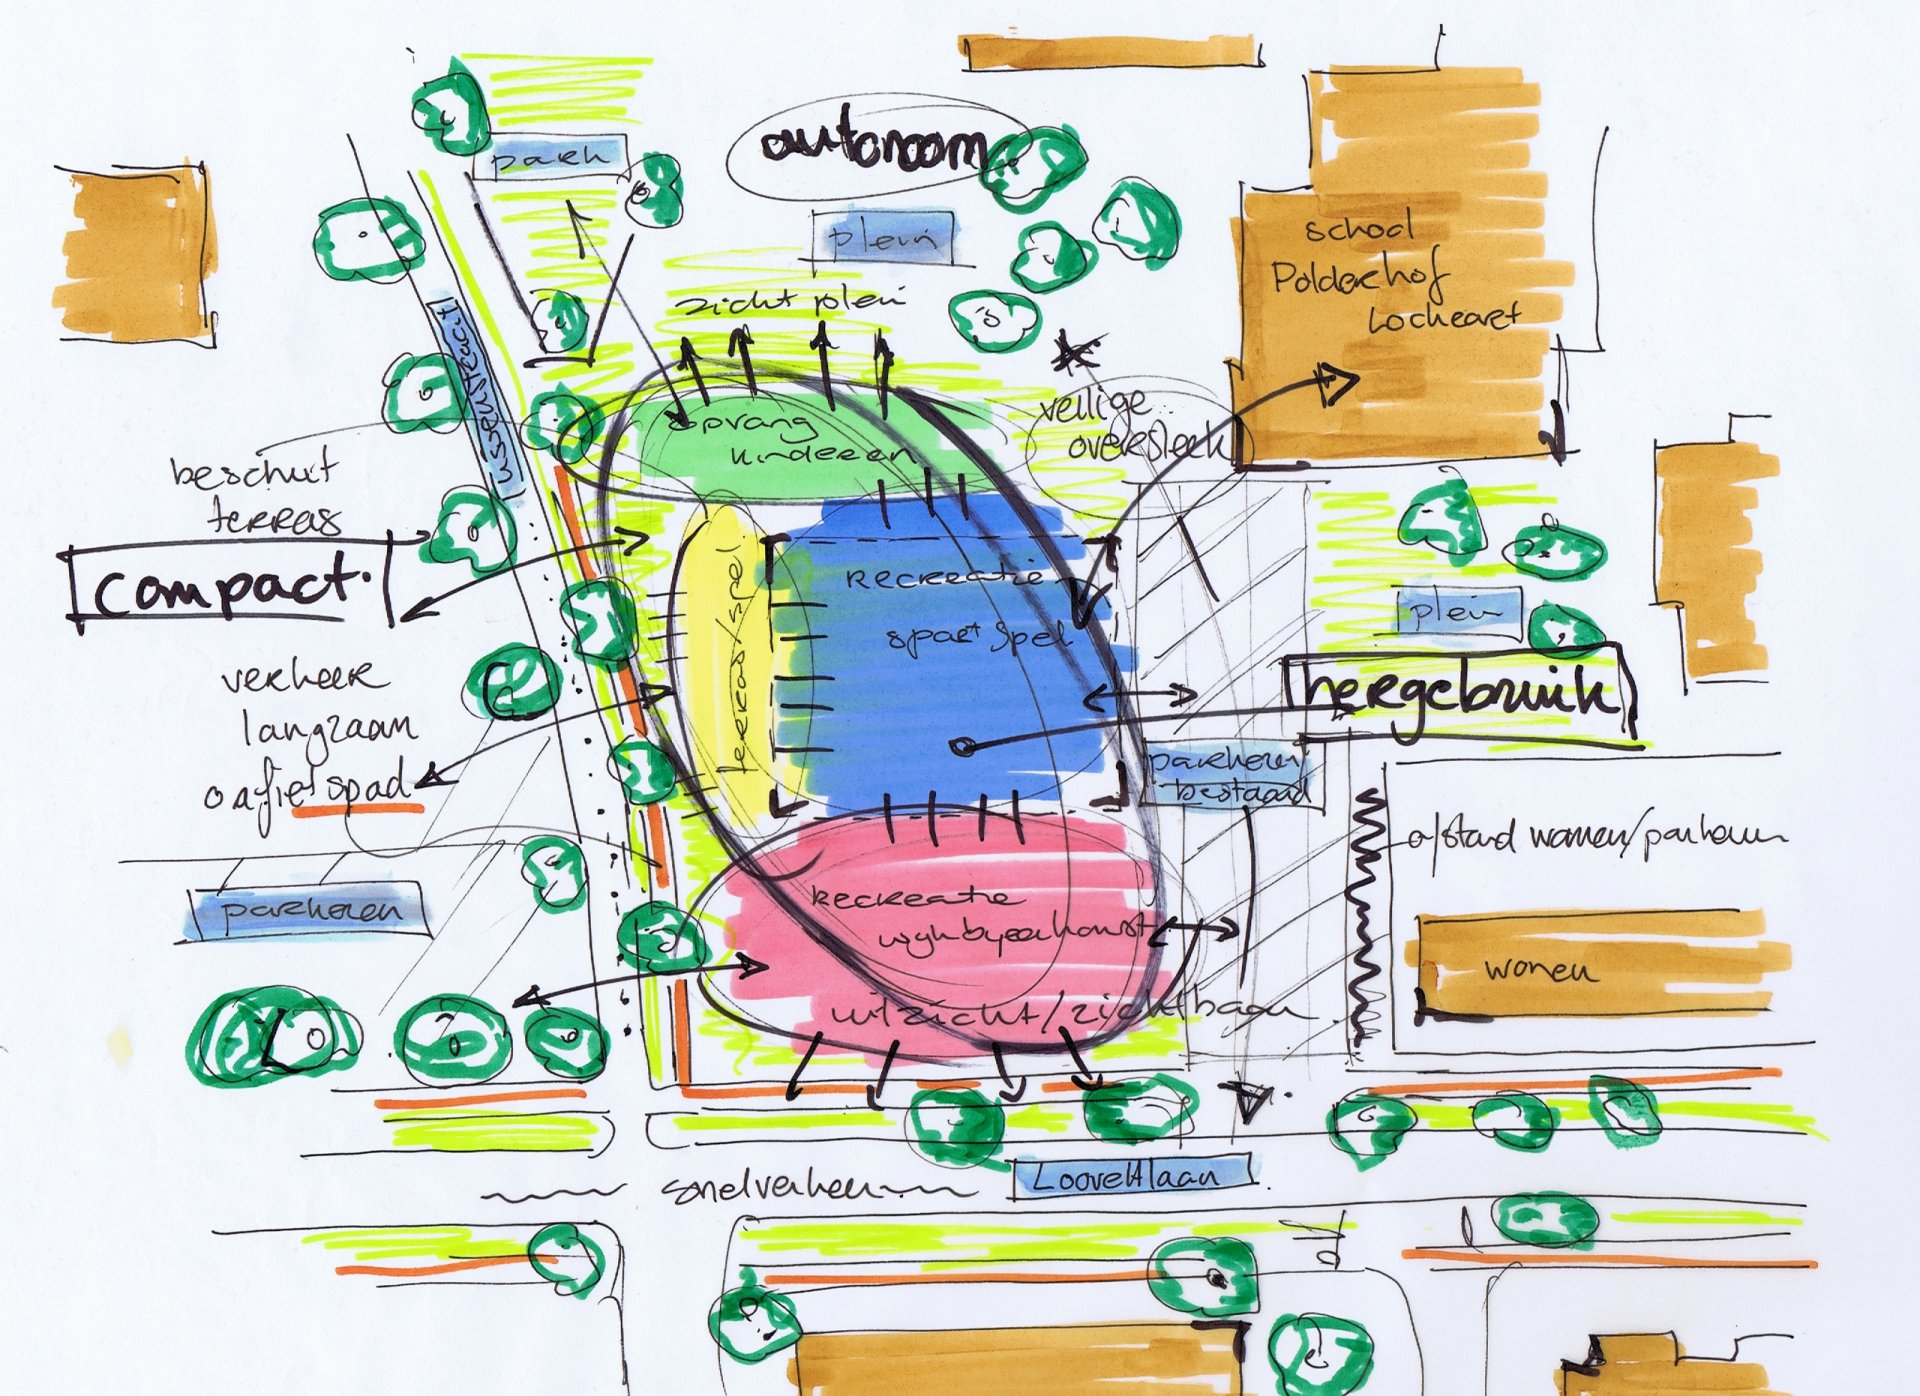 park
autonoom
plein
zicht plein
school
Polderhof
Locheart
opvang
kinderen
veilige
oversteek
beschut
terras
compact
terras/spel
recreatie
sport spel
plein
hergebruik
verkeer
langzaam
fietspad
parkeren
bestaand
afstand wonen/parkeren
parkeren
recreatie
wijkbyeenkomst
wonen
uitzicht/zichtbaan
snelverkeer
Looveltlaan